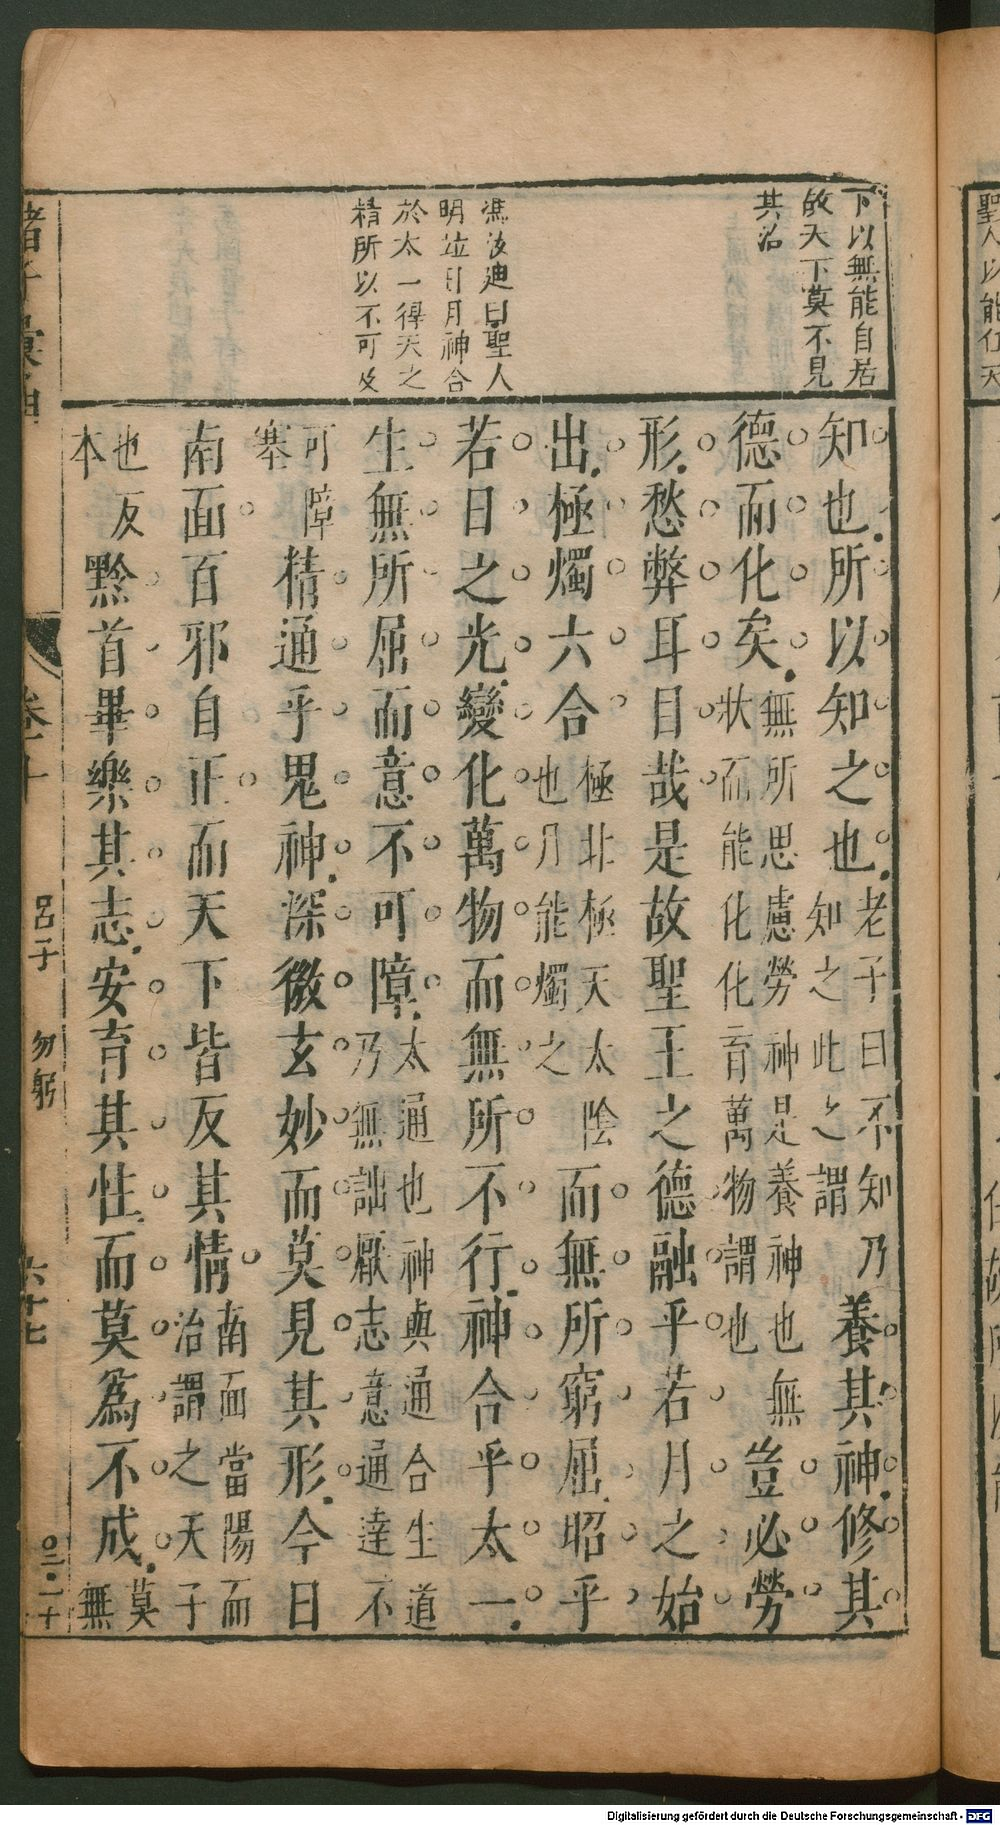 下以無能自居
故天下莫不見
其治
馮汝廸曰聖人
明並日月神合
於太一得天之
精所以不可及
知也所以知之也老子曰不知乃知之此之謂養其神修其
德而化矣無所思慮勞神是養神也無狀而能化化育萬物謂也豈必勞
形愁弊耳目哉是故聖王之德融乎若月之始
出極燭六合極北極天太陰也月能燭之而無所窮屈昭乎
若日之光變化萬物而無所不行神合乎太一
生無所屈而意不可障太通也神與通合生道乃無詘厭志意通達不
可障塞精通乎鬼神深微玄妙而莫見其形今日
南面百邪自正而天下皆反其情南面當陽而治謂之天子
也反本黔首畢樂其志安育其性而莫爲不成莫無
諸子彙函
卷十
呂子
勿躬
六十七
Digitalisierung gefördert durch die Deutsche Forschungsgemeinschaft - DFG